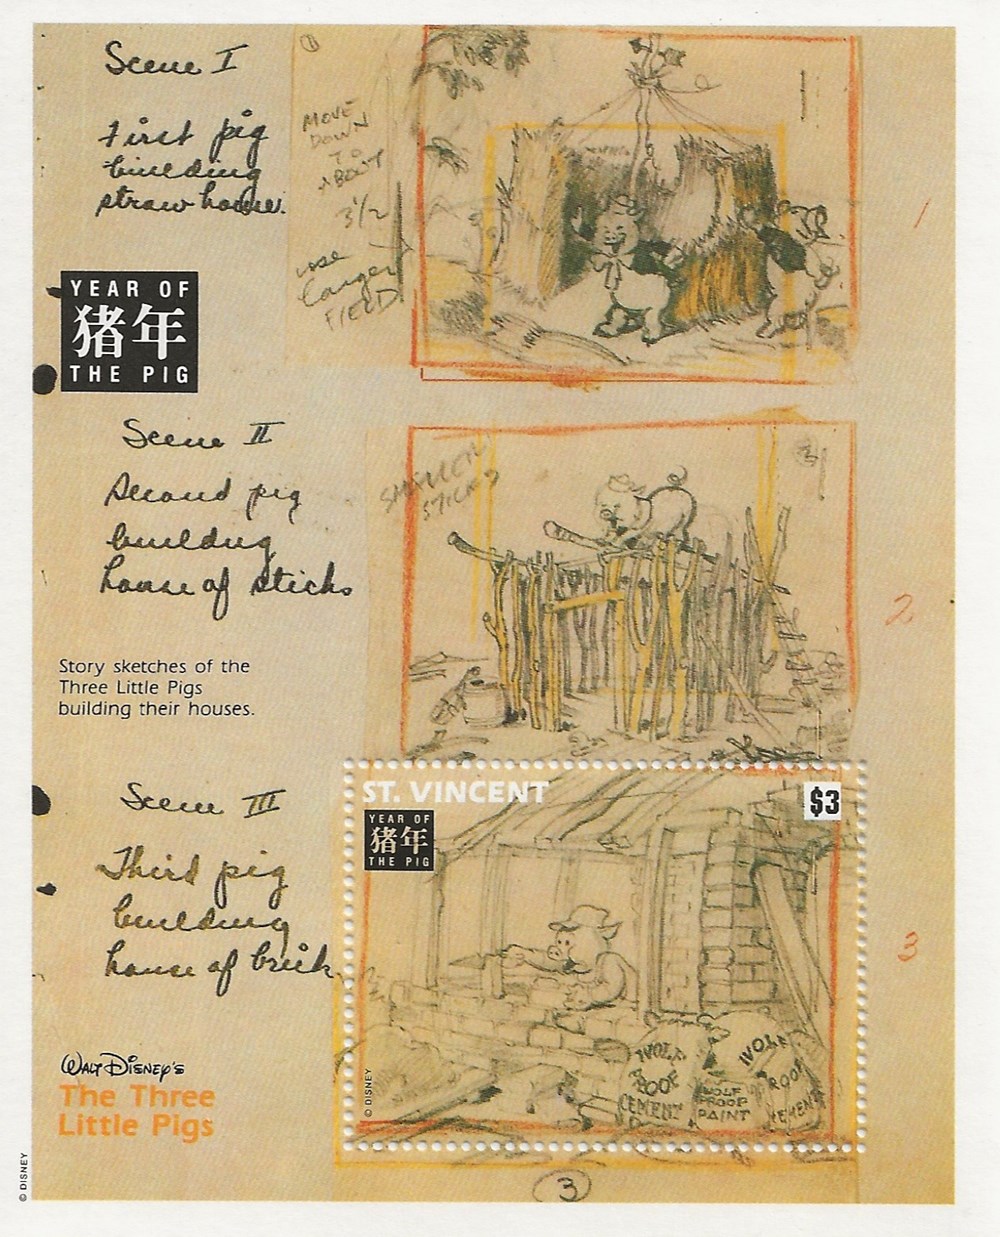 Scene I
First pig
building
straw house.
①
MOVE
DOWN
TO
ABOUT
3 1/2
use
larger
FIELD
1
YEAR OF
猪年
THE PIG
Scene II
Second pig
building
house of sticks
SMALLER
STICKS
2
Story sketches of the
Three Little Pigs
building their houses.
Scene III
Third pig
building
house of brick
ST. VINCENT
$3
YEAR OF
猪年
THE PIG
3
WOLF
PROOF
CEMENT
WOLF
PROOF
PAINT
WOLF
PROOF
CEMENT
© DISNEY
WALT DISNEY'S
The Three
Little Pigs
© DISNEY
3